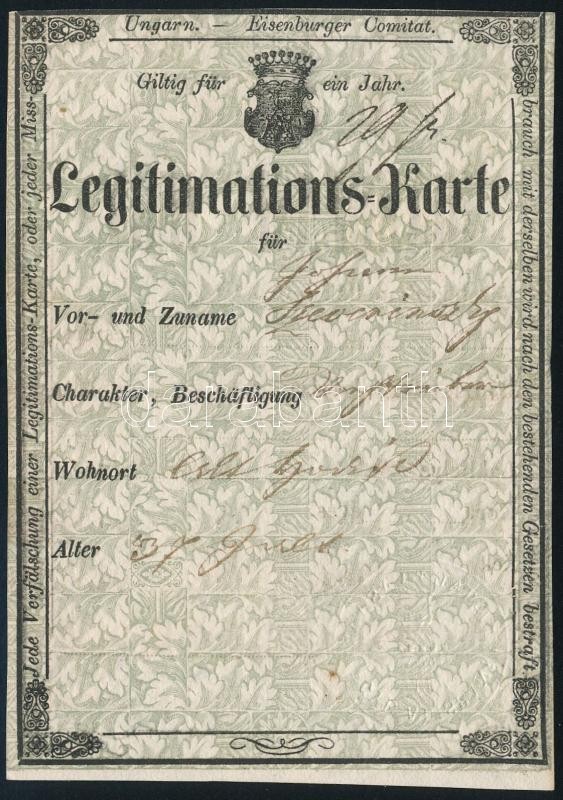 Ungarn. — Eisenburger Comitat.
Giltig für ein Jahr.
Legitimations-Karte
für
Johann
Vor- und Zuname
Charakter, Beschäftigung
Wohnort
Alter 37 Jahre
Jede Verfälschung einer Legitimations-Karte, oder jeder Miss-
brauch mit derselben wird nach den bestehenden Gesetzen bestraft.
darabanth